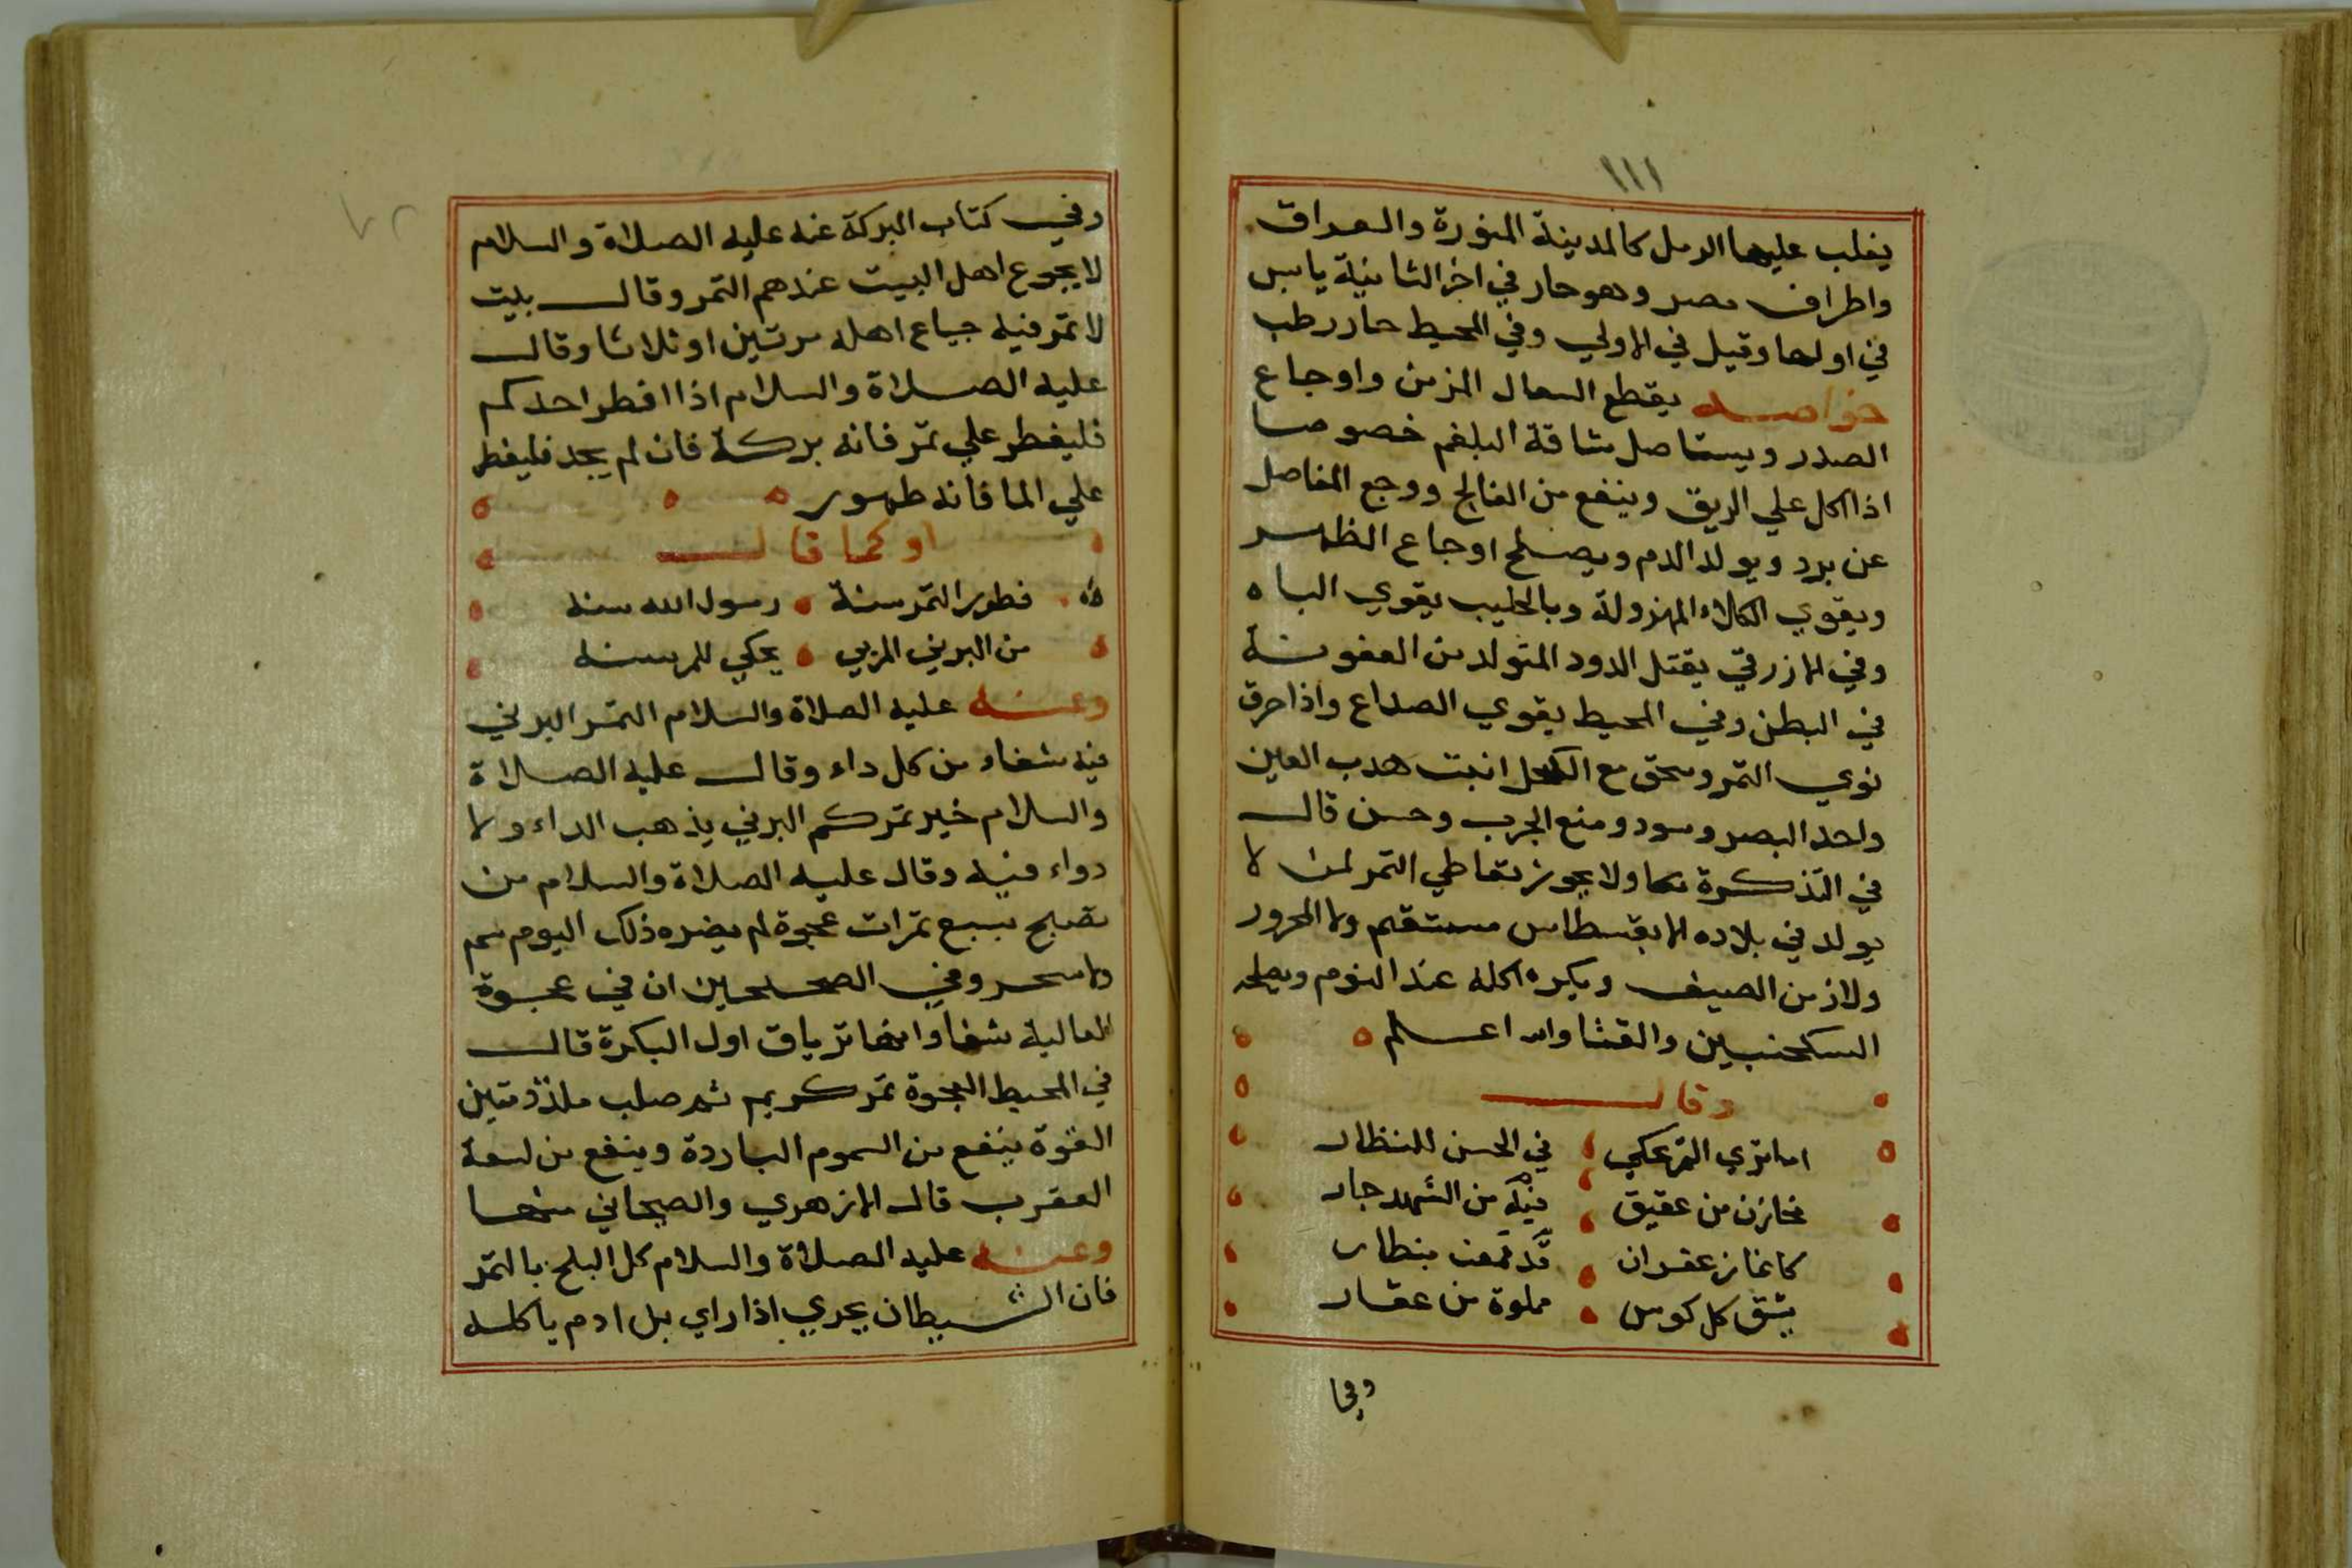 ١١١
يغلب عليها الرمل كالمدينة المنورة والعراق
واطراف مصر وهو حار في اخر الثانية يابس
في اولها وقيل في الاولي وفي المحيط حار رطب
خواصه يقطع السعال المزمن واوجاع
الصدر ويستاصل شاقة البلغم خصوصا
اذا اكل علي الريق وينفع من الفالج ووجع المفاصل
عن برد ويولد الدم ويصلح اوجاع الظهر
ويقوي الكلاء المهزولة وبالحليب يقوي الباه
وفي الازرقي يقتل الدود المتولد من العفونة
في البطن وفي المحيط يقوي الصداع واذا حرق
نوي التمر وسحق مع الكحل انبت هدب العين
واحد البصر وسود ومنع الجرب وحسن قال
في التذكرة ولا يجوز تعاطي التمر لمن لا
يولد في بلاده الا بقسطاس مستقيم ولا المحرور
ولا زمن الصيف ويكره اكله عند النوم ويصلحه
السكنجبين والقثا والله اعلم
وقال
اما تري التمر يحكي في الحسن للنظار
مخازن من عقيق قد قمعت بنظار
كانما زعفران فيه من الشهد جار
يشق كل كوس مملوة من عقار
وفي
وفي كتاب البركة عنه عليه الصلاة والسلام
لا يجوع اهل البيت عندهم التمر وقال بيت
لا تمر فيه جياع اهله مرتين او ثلاثا وقال
عليه الصلاة والسلام اذا افطر احدكم
فليفطر علي تمر فانه بركة فان لم يجد فليفطر
علي الما فانه طهور
او كما قال
فطور التمر سنة رسول الله سنه
من البرني المربي يحكي للمرسنه
وعنه عليه الصلاة والسلام التمر البرني
فيه شفاء من كل داء وقال عليه الصلاة
والسلام خير تمركم البرني يذهب الداء ولا
دواء فيه وقال عليه الصلاة والسلام من
تصبح بسبع تمرات عجوة لم يضره ذلك اليوم سم
ولا سحر وفي الصحيحين ان في عجوة
العالية شفا وانها ترياق اول البكرة قال
في المحيط العجوة تمر كريم صلب ملذذ متين
القوة ينفع من السموم الباردة وينفع من لسعة
العقرب قال الازهري والصيحاني منها
وعنه عليه الصلاة والسلام كل البلح بالتمر
فان الشيطان يجري اذا راي بل ادم ياكله